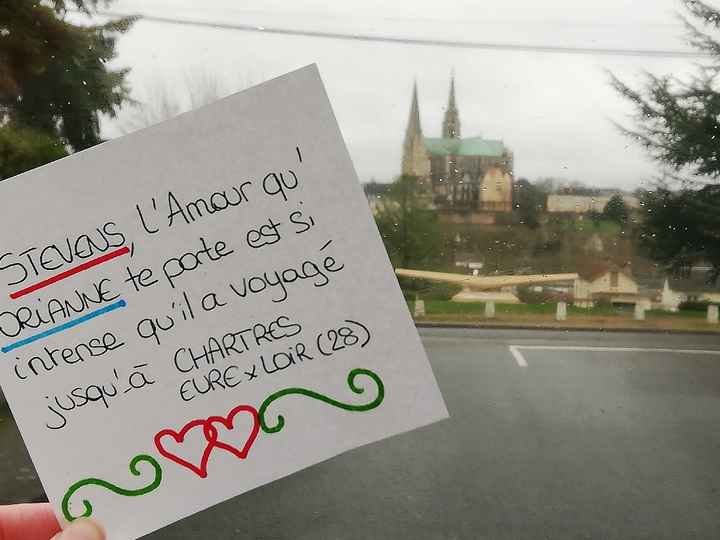 STEVENS, l'Amour qu'
ORIANNE te porte est si
intense qu'il a voyagé
jusqu'à CHARTRES
EURE x LOIR (28)